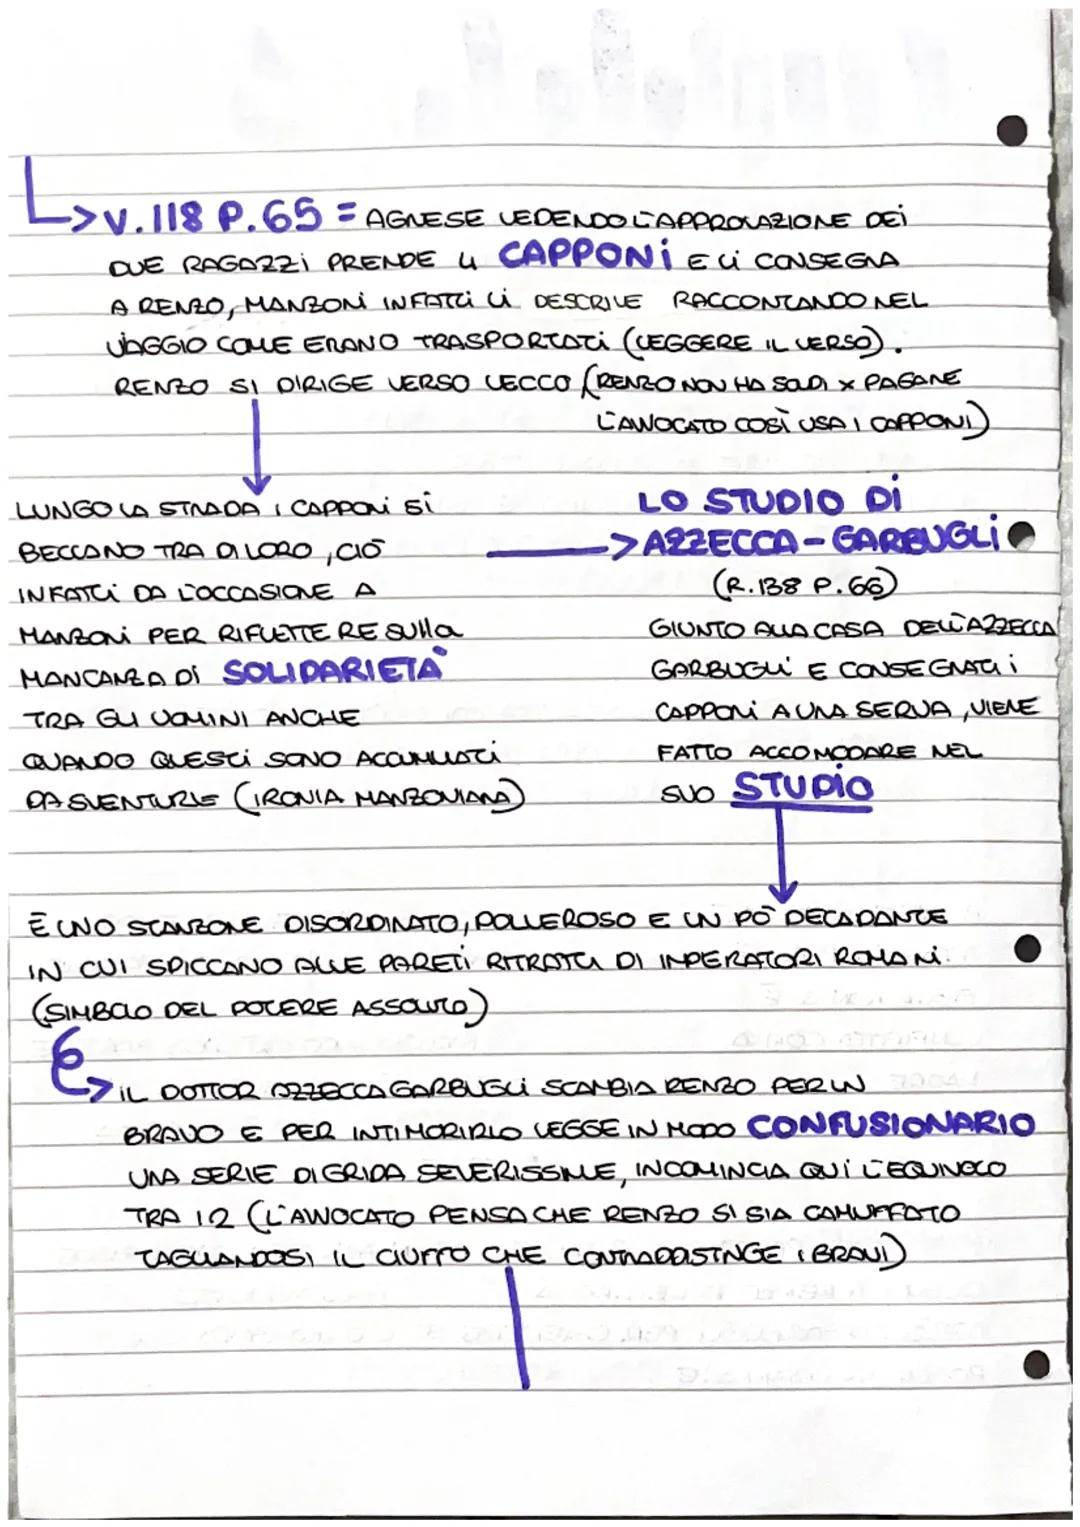 V. 118 P. 65 = AGNESE VEDENDO L'APPROVAZIONE DEI
DUE RAGAZZI PRENDE 4 CAPPONI E LI CONSEGNA
A RENZO, MANZONI INFATTI LI DESCRIVE RACCONTANDO NEL
VIAGGIO COME ERANO TRASPORTATI (LEGGERE IL VERSO).
RENZO SI DIRIGE VERSO LECCO (RENZO NON HA SOLDI X PAGARE
L'AVVOCATO COSÌ USA I CAPPONI)
LUNGO LA STRADA I CAPPONI SI
BECCANO TRA DI LORO, CIÒ
INFATTI DA L'OCCASIONE A
MANZONI PER RIFLETTERE SULLA
MANCANZA DI SOLIDARIETÀ
TRA GLI UOMINI ANCHE
QUANDO QUESTI SONO ACCUMULATI
DA SVENTURE (IRONIA MANZONIANA)
LO STUDIO DI
AZZECCA-GARBUGLI
(R. 138 P. 66)
GIUNTO ALLA CASA DELL'AZZECCA
GARBUGLI E CONSEGNATI I
CAPPONI A UNA SERVA, VIENE
FATTO ACCOMODARE NEL
SUO STUDIO
È UNO STANZONE DISORDINATO, POLVEROSO E UN PÒ DECADANTE
IN CUI SPICCANO ALLE PARETI RITRATTI DI IMPERATORI ROMANI.
(SIMBOLO DEL POTERE ASSOLUTO)
IL DOTTOR AZZECCAGARBUGLI SCAMBIA RENZO PER UN
BRAVO E PER INTIMORIRLO LEGGE IN MODO CONFUSIONARIO
UNA SERIE DI GRIDA SEVERISSIME, INCOMINCIA QUI L'EQUIVOCO
TRA I 2 (L'AVVOCATO PENSA CHE RENZO SI SIA CAMUFFATO
TAGLIANDOSI IL CIUFFO CHE CONTRADDISTINGE I BRAVI)